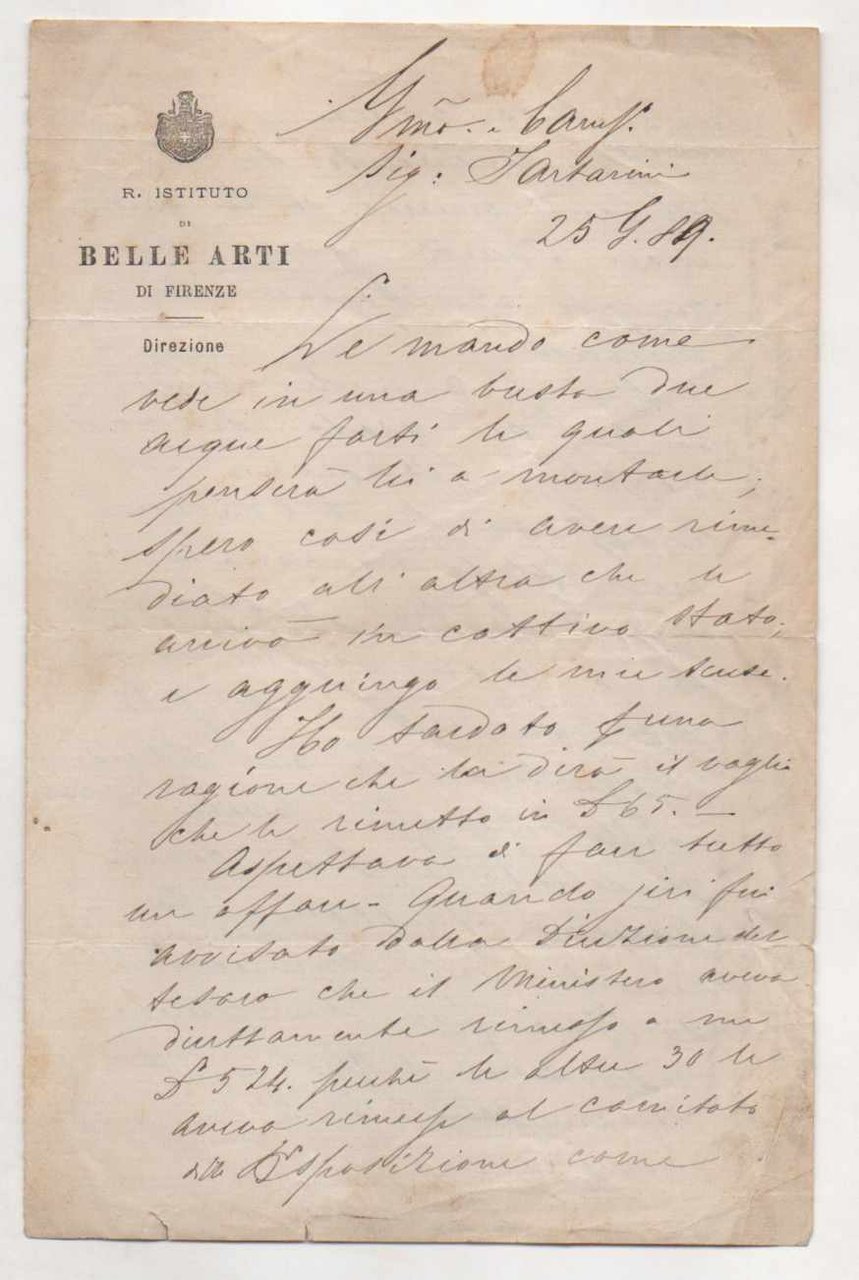 R. ISTITUTO
DI
BELLE ARTI
DI FIRENZE
Direzione
Sig: Tartarini
25 G. 89.
Le mando come
vede in una busta due
acque forti le quali
penserà lei a montarle;
spero così di avere rime-
diato all'altra che le
arrivò in cattivo stato;
e aggiungo le mie scuse.
Ho tardato per una
ragione che la dirà il vaglia
che le rimetto in £ 65. —
Aspettava di fare tutto
un affare - Quando jeri fui
avvisato dalla Direzione del
tesoro che il Ministero aveva
direttamente rimesso a me
£ 524. perché le altre 30 le
aveva rimesse al comitato
della Esposizione come